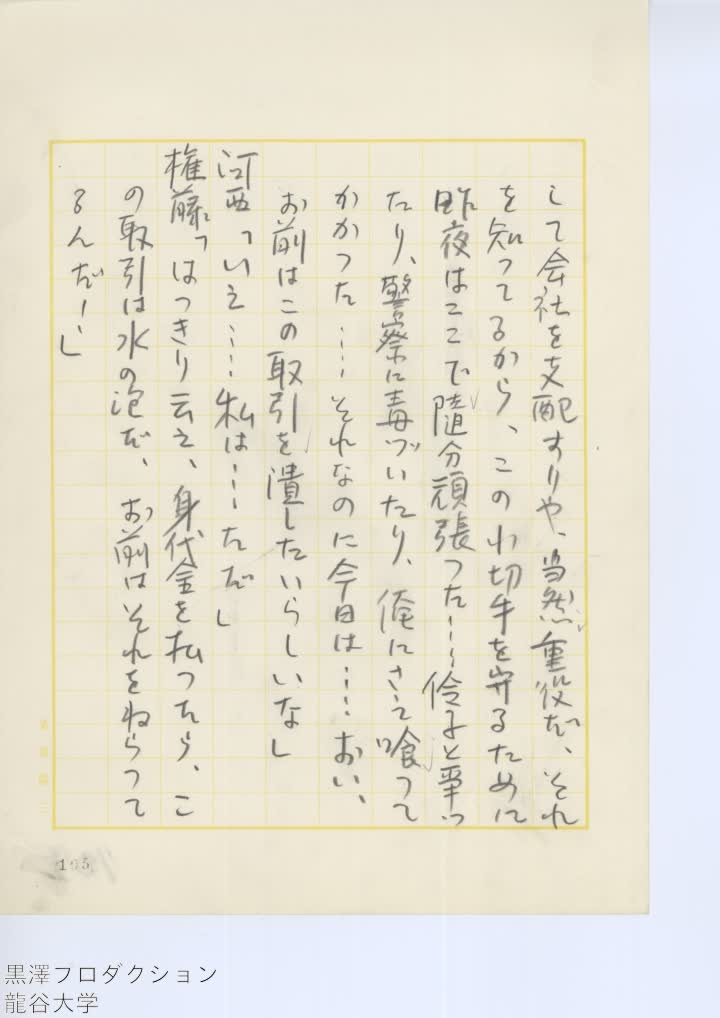 して会社を支配すりや、当然重役だ、それ
を知つてるから、この小切手を守るために
昨夜はここで随分頑張つた……伶子と爭つ
たり、警察に毒づいたり、俺にさえ喰つて
かかつた……それなのに今日は……おい、
お前はこの取引を潰したいらしいな」
河西「いえ……私は……ただ」
権藤「はつきり云え、身代金を払つたら、こ
の取引は水の泡だ、お前はそれをねらつて
るんだ！」
105
黒澤プロダクション
龍谷大学